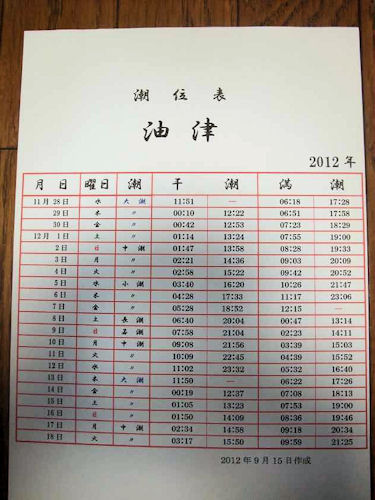 潮 位 表
油 津
2012 年
月 日 曜日 潮 干 潮 満 潮
11月 28日 水 大 潮 11:51 — 06:18 17:28
29日 木 〃 00:10 12:22 06:51 17:58
30日 金 〃 00:42 12:53 07:23 18:29
12月 1日 土 〃 01:14 13:24 07:55 19:00
2日 日 中 潮 01:47 13:58 08:28 19:33
3日 月 〃 02:21 14:36 09:03 20:09
4日 火 〃 02:58 15:22 09:42 20:52
5日 水 小 潮 03:40 16:20 10:26 21:47
6日 木 〃 04:28 17:33 11:17 23:06
7日 金 〃 05:28 18:52 12:15 —
8日 土 長 潮 06:40 20:04 00:47 13:14
9日 日 若 潮 07:58 21:04 02:23 14:11
10日 月 中 潮 09:08 21:56 03:39 15:03
11日 火 〃 10:09 22:45 04:39 15:52
12日 水 〃 11:02 23:32 05:32 16:40
13日 木 大 潮 11:50 — 06:22 17:26
14日 金 〃 00:19 12:37 07:08 18:13
15日 土 〃 01:05 13:23 07:53 19:00
16日 日 〃 01:50 14:09 08:36 19:46
17日 月 中 潮 02:34 14:58 09:18 20:34
18日 火 〃 03:17 15:50 09:59 21:25
2012年9月15日作成